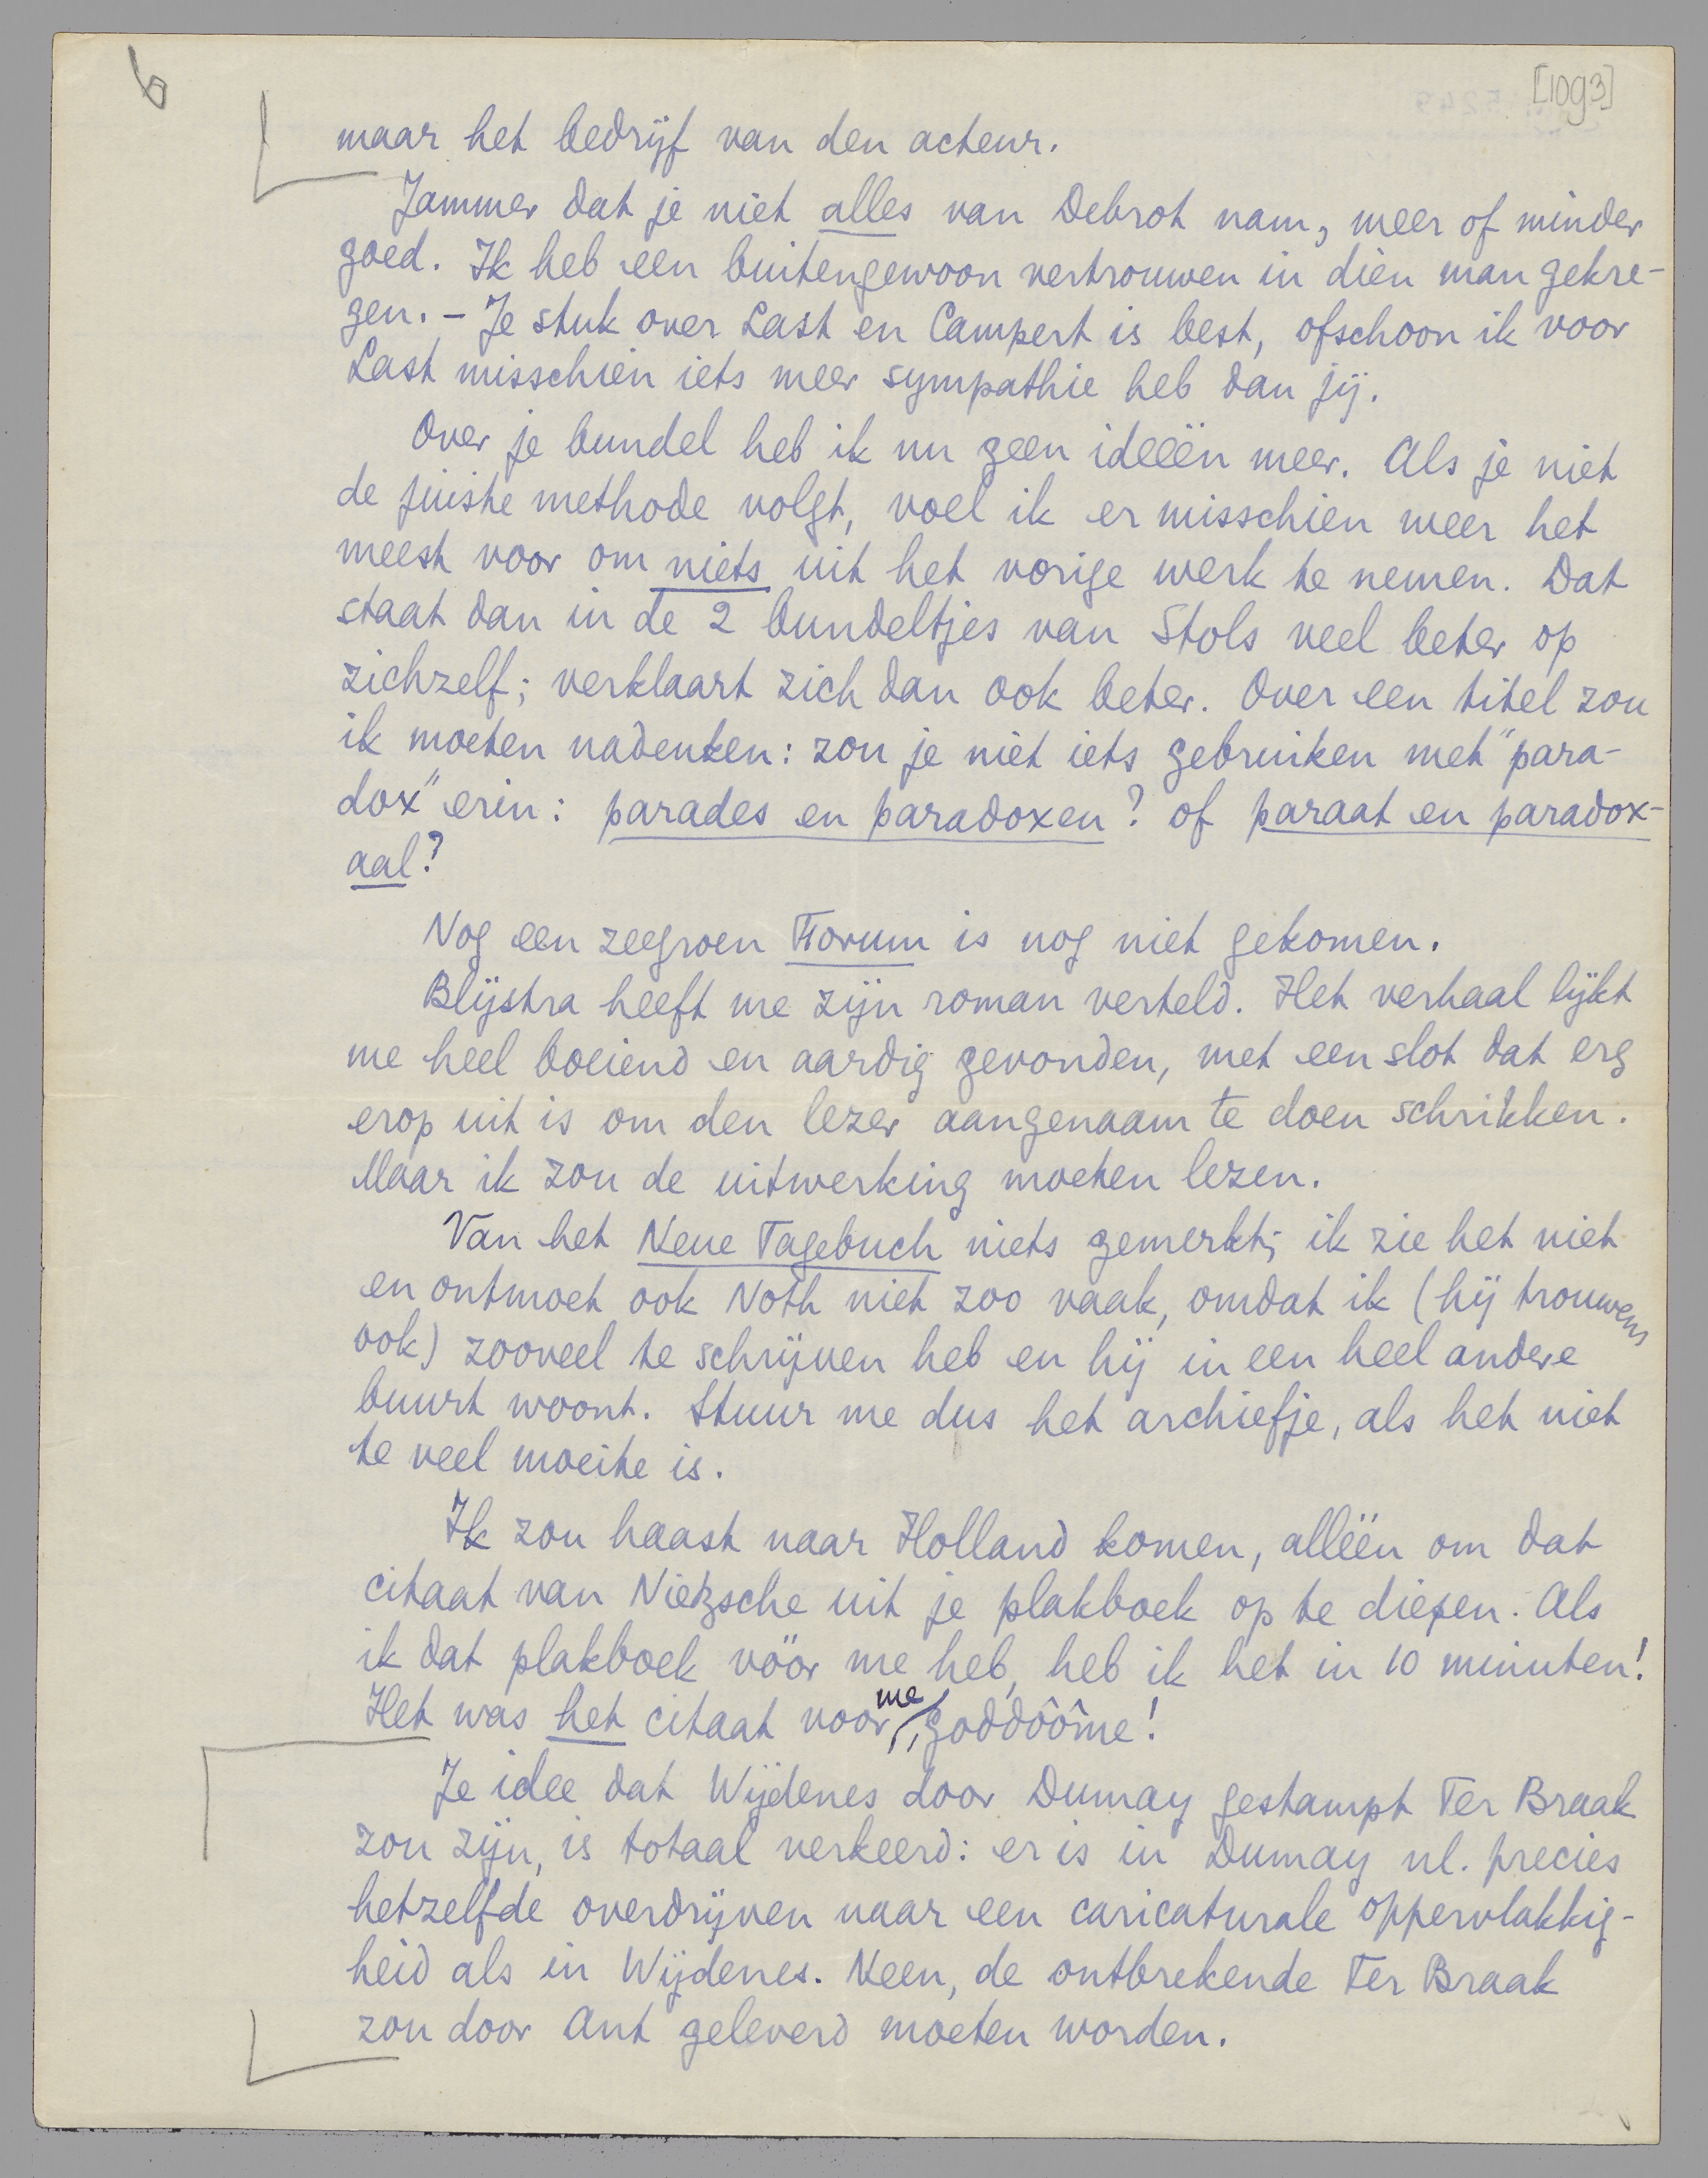 6
[1093]
maar het bedrijf van den acteur.
Jammer dat je niet alles van Debrot nam, meer of minder
goed. Ik heb een buitengewoon vertrouwen in dien man gekre-
gen. – Je stuk over Last en Campert is best, ofschoon ik voor
Last misschien iets meer sympathie heb dan jij.
Over je bundel heb ik nu geen ideeën meer. Als je niet
de juiste methode volgt, voel ik er misschien weer het
meest voor om niets uit het vorige werk te nemen. Dat
staat dan in de 2 bundeltjes van Stols veel beter op
zichzelf; verklaart zich dan ook beter. Over een titel zou
ik moeten nadenken: zou je niet iets gebruiken met "para-
dox" erin: parades en paradoxen? of paraat en paradox-
aal?
Nog een zeegroen Forum is nog niet gekomen.
Blijstra heeft me zijn roman verteld. Het verhaal lijkt
me heel boeiend en aardig gevonden, met een slot dat erg
erop uit is om den lezer aangenaam te doen schrikken.
Maar ik zou de uitwerking moeten lezen.
Van het Neue Tagebuch niets gemerkt; ik zie het niet
en ontmoet ook Noth niet zoo vaak, omdat ik (hij trouwens
ook) zooveel te schrijven heb en hij in een heel andere
buurt woont. Stuur me dus het archiefje, als het niet
te veel moeite is.
Ik zou haast naar Holland komen, alléén om dat
citaat van Nietzsche uit je plakboek op te diepen. Als
ik dat plakboek vóór me heb, heb ik het in 10 minuten!
Het was het citaat voor me, goddôôme!
Je idee dat Wijdenes door Dumay gestampt Ter Braak
zou zijn, is totaal verkeerd: er is in Dumay nl. precies
hetzelfde overdrijven naar een caricaturale oppervlakkig-
heid als in Wijdenes. Neen, de ontbrekende Ter Braak
zou door Ant geleverd moeten worden.